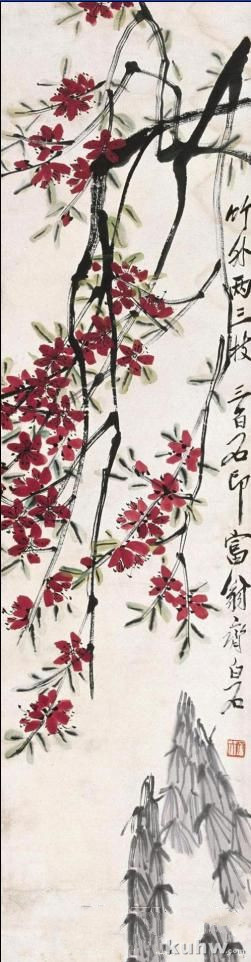 竹外两三枝 三百石印富翁齐白石
kuhw.com